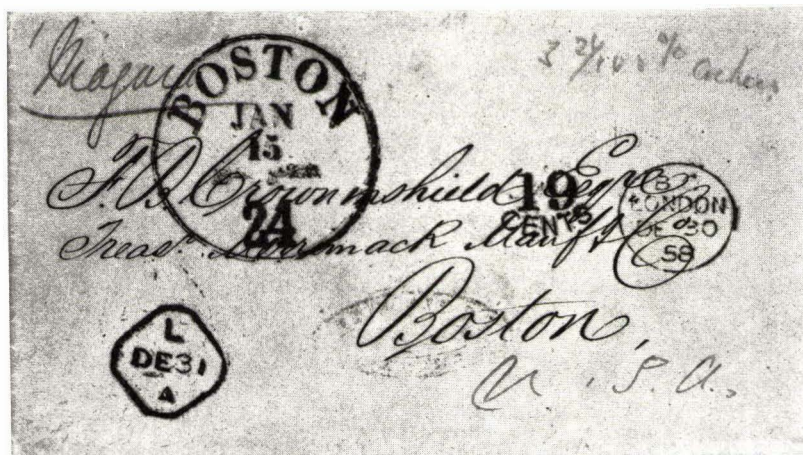 Niagara
BOSTON
JAN
15
24
F. B. Crowninshield Esqre
19
CENTS
B
LONDON
DE 30
58
Treasr Merrimack Manuf
Boston,
U. S. A.
L
DE31
A